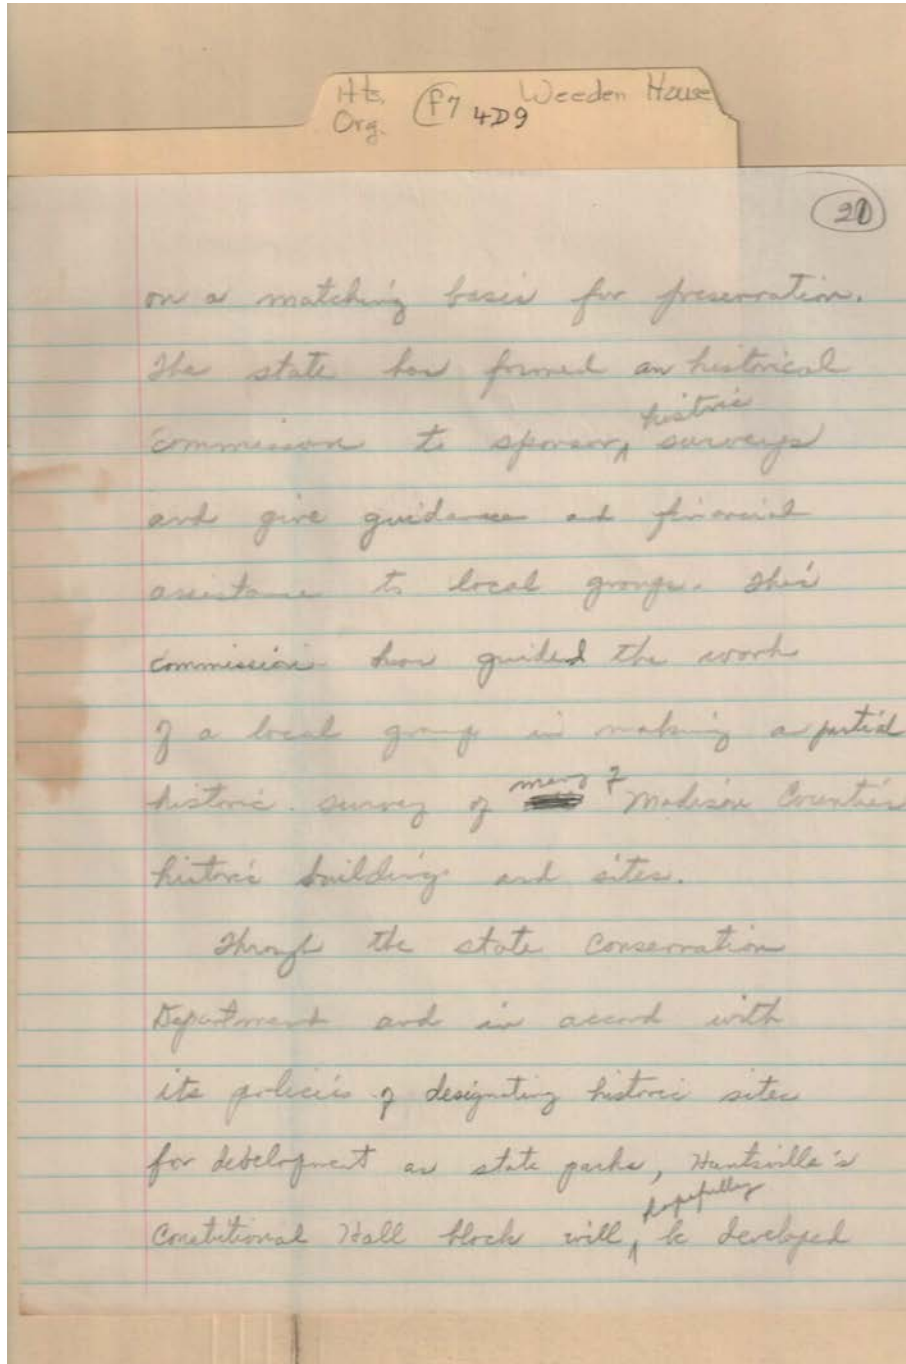 Hts. Weeden House
Org. F7 4D9
21
on a matching basis for preservation.
The state has formed an historical
historic
commission to sponsor ^ surveys
and give guidance and financial
assistance to local groups. This
commission has guided the work
of a local group in making a partial
many of
historic survey of Madison Counties
historic buildings and sites.
Through the state Conservation
Department and in accord with
its policies of designating historic sites
for development as state parks, Huntsville's
hopefully
Constitutional Hall block will ^ be developed